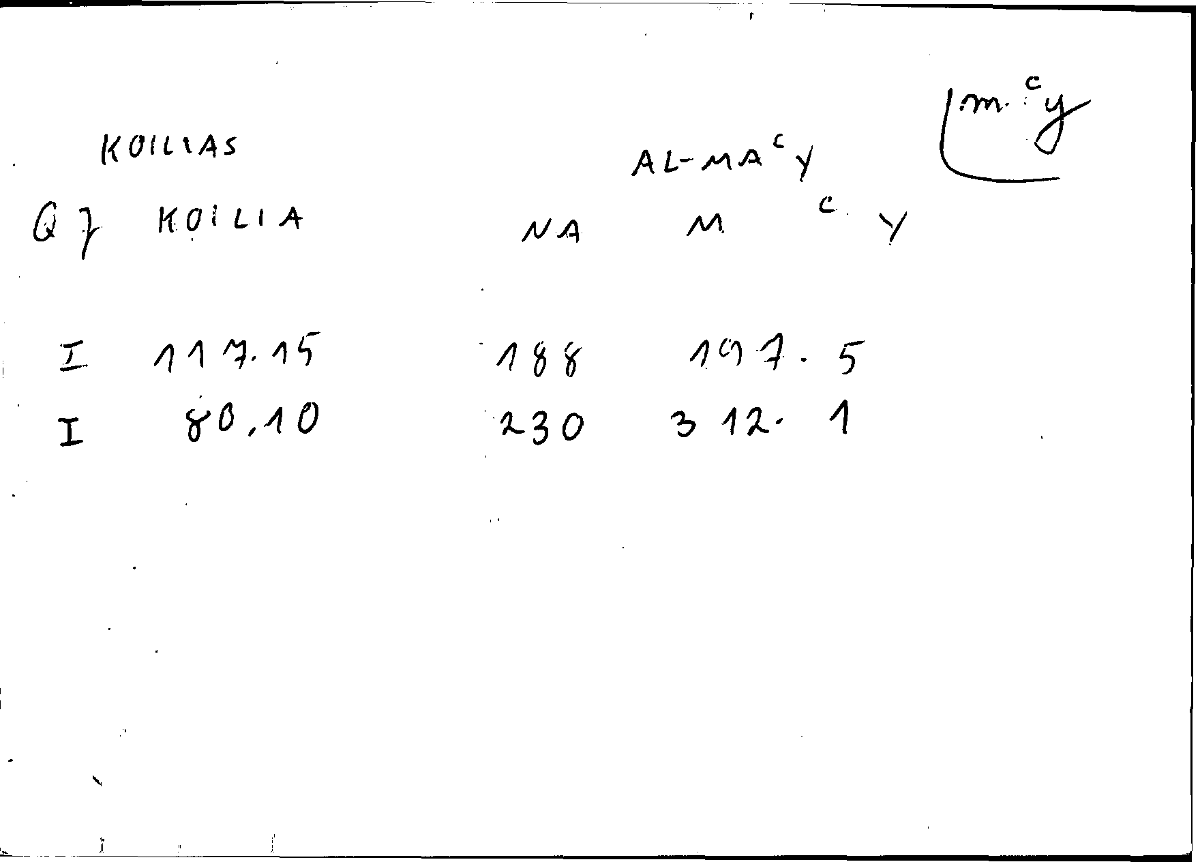 m ᶜy
KOILIAS AL-MAᶜY
Qf KOILIA NA M ᶜ Y
I 117.15 188 197.5
I 80.10 230 312.1